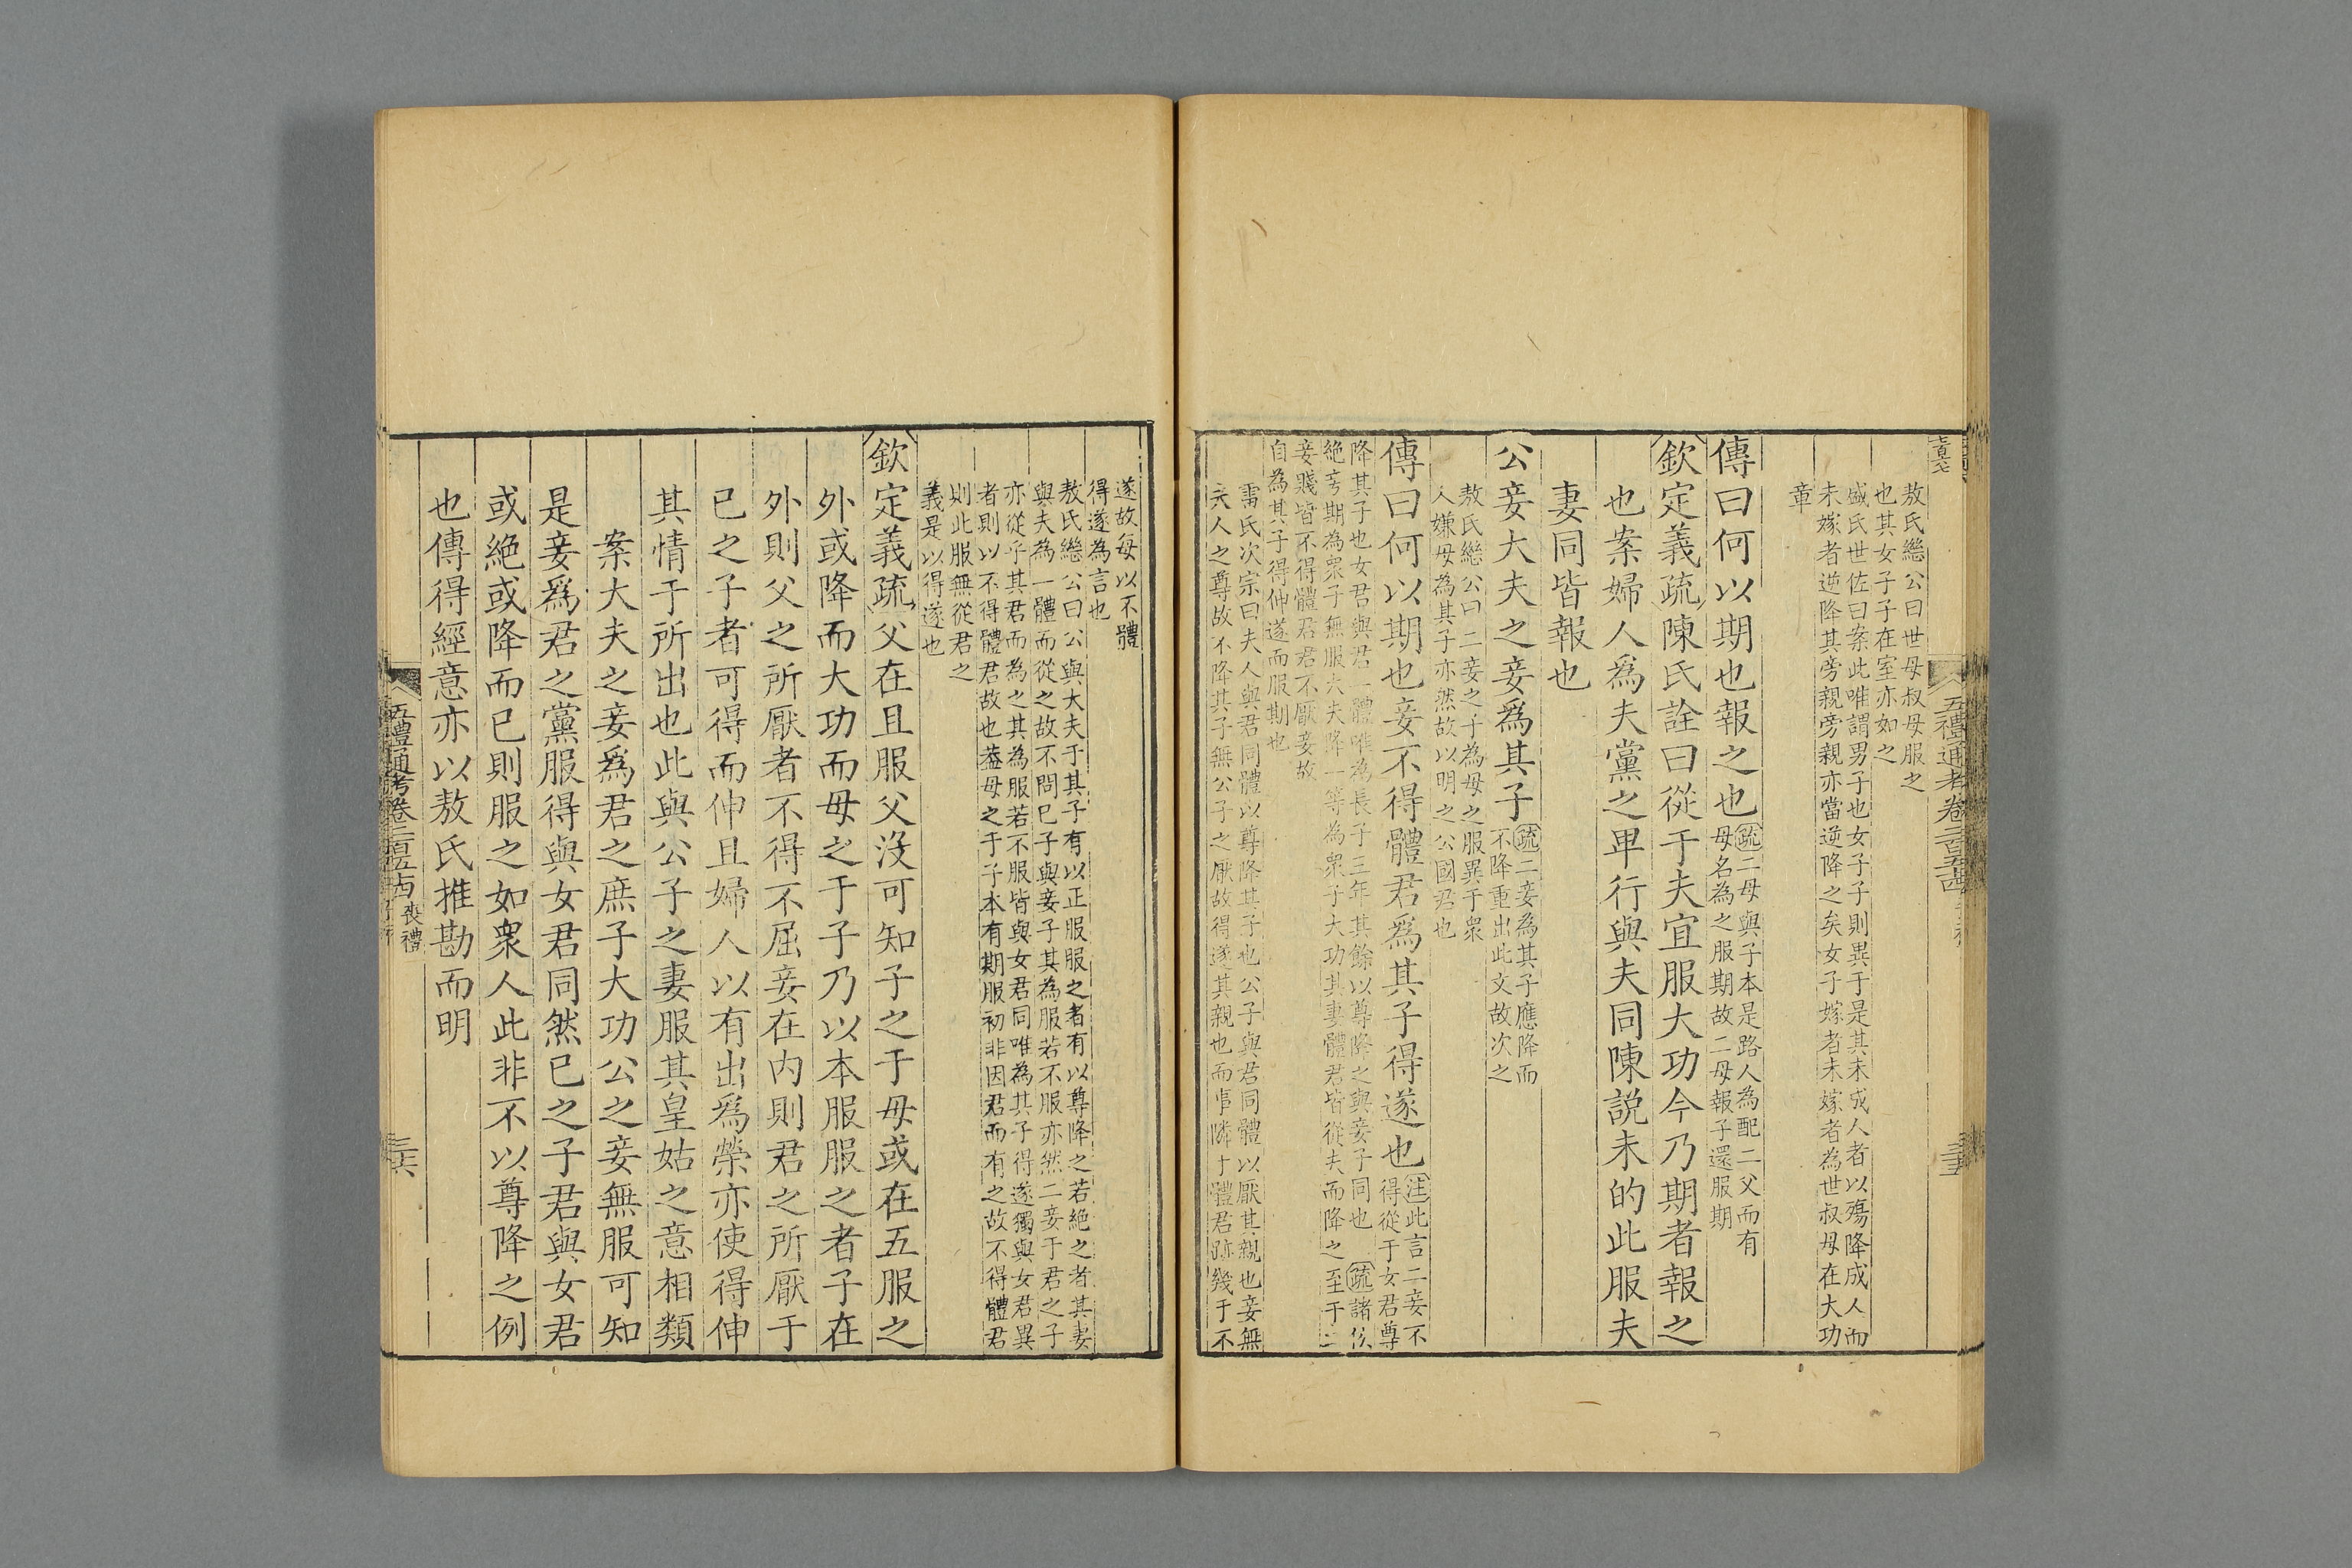 敖氏繼公曰世母叔母服之
也其女子子在室亦如之
盛氏世佐曰案此唯謂男子也女子子則異于是其未成人者以殤降成人而
未嫁者逆降其旁親旁親亦當逆降之矣女子子嫁者未嫁者為世叔母在大功
章
傳曰何以期也報之也
疏二母與子本是路人為配二父而有
母名為之服期故二母報子還服期
欽定義疏陳氏詮曰從于夫宜服大功今乃期者報之
也案婦人爲夫黨之卑行與夫同陳説未的此服夫
妻同皆報也
公妾大夫之妾爲其子
疏二妾為其子應降而
不降重出此文故次之
敖氏繼公曰二妾之子為母之服異于衆
人嫌母為其子亦然故以明之公國君也
傳曰何以期也妾不得體君爲其子得遂也
注此言二妾不
得從于女君尊
降其子也女君與君一體唯為長子三年其餘以尊降之與妾子同也 疏諸侯
絶旁期為衆子無服大夫降一等為衆子大功其妻體君皆從夫而降之至于二
妾賤皆不得體君君不厭妾故
自為其子得伸遂而服期也
雷氏次宗曰夫人與君同體以尊降其子也公子與君同體以厭其親也妾無
夫人之尊故不降其子無公子之厭故得遂其親也而事隣于體君跡幾于不
五禮通考卷二百五十四
遂故每以不體
得遂為言也
敖氏繼公曰公與大夫于其子有以正服服之者有以尊降之若絶之者其妻
與夫為一體而從之故不問己子與妾子其為服若不服亦然二妾于君之子
亦從乎其君而為之其為服若不服皆與女君同唯為其子得遂獨與女君異
者則以不得體君故也葢母之于子本有期服初非因君而有之故不得體君
則此服無從君之
義是以得遂也
欽定義疏父在且服父没可知子之于母或在五服之
外或降而大功而母之于子乃以本服服之者子在
外則父之所厭者不得不屈妾在内則君之所厭于
已之子者可得而伸且婦人以有出爲榮亦使得伸
其情于所出也此與公子之妻服其皇姑之意相類
案大夫之妾爲君之庶子大功公之妾無服可知
是妾爲君之黨服得與女君同然已之子君與女君
或絶或降而已則服之如衆人此非不以尊降之例
也傳得經意亦以敖氏推勘而明
五禮通考卷二百五十四 喪禮
三六